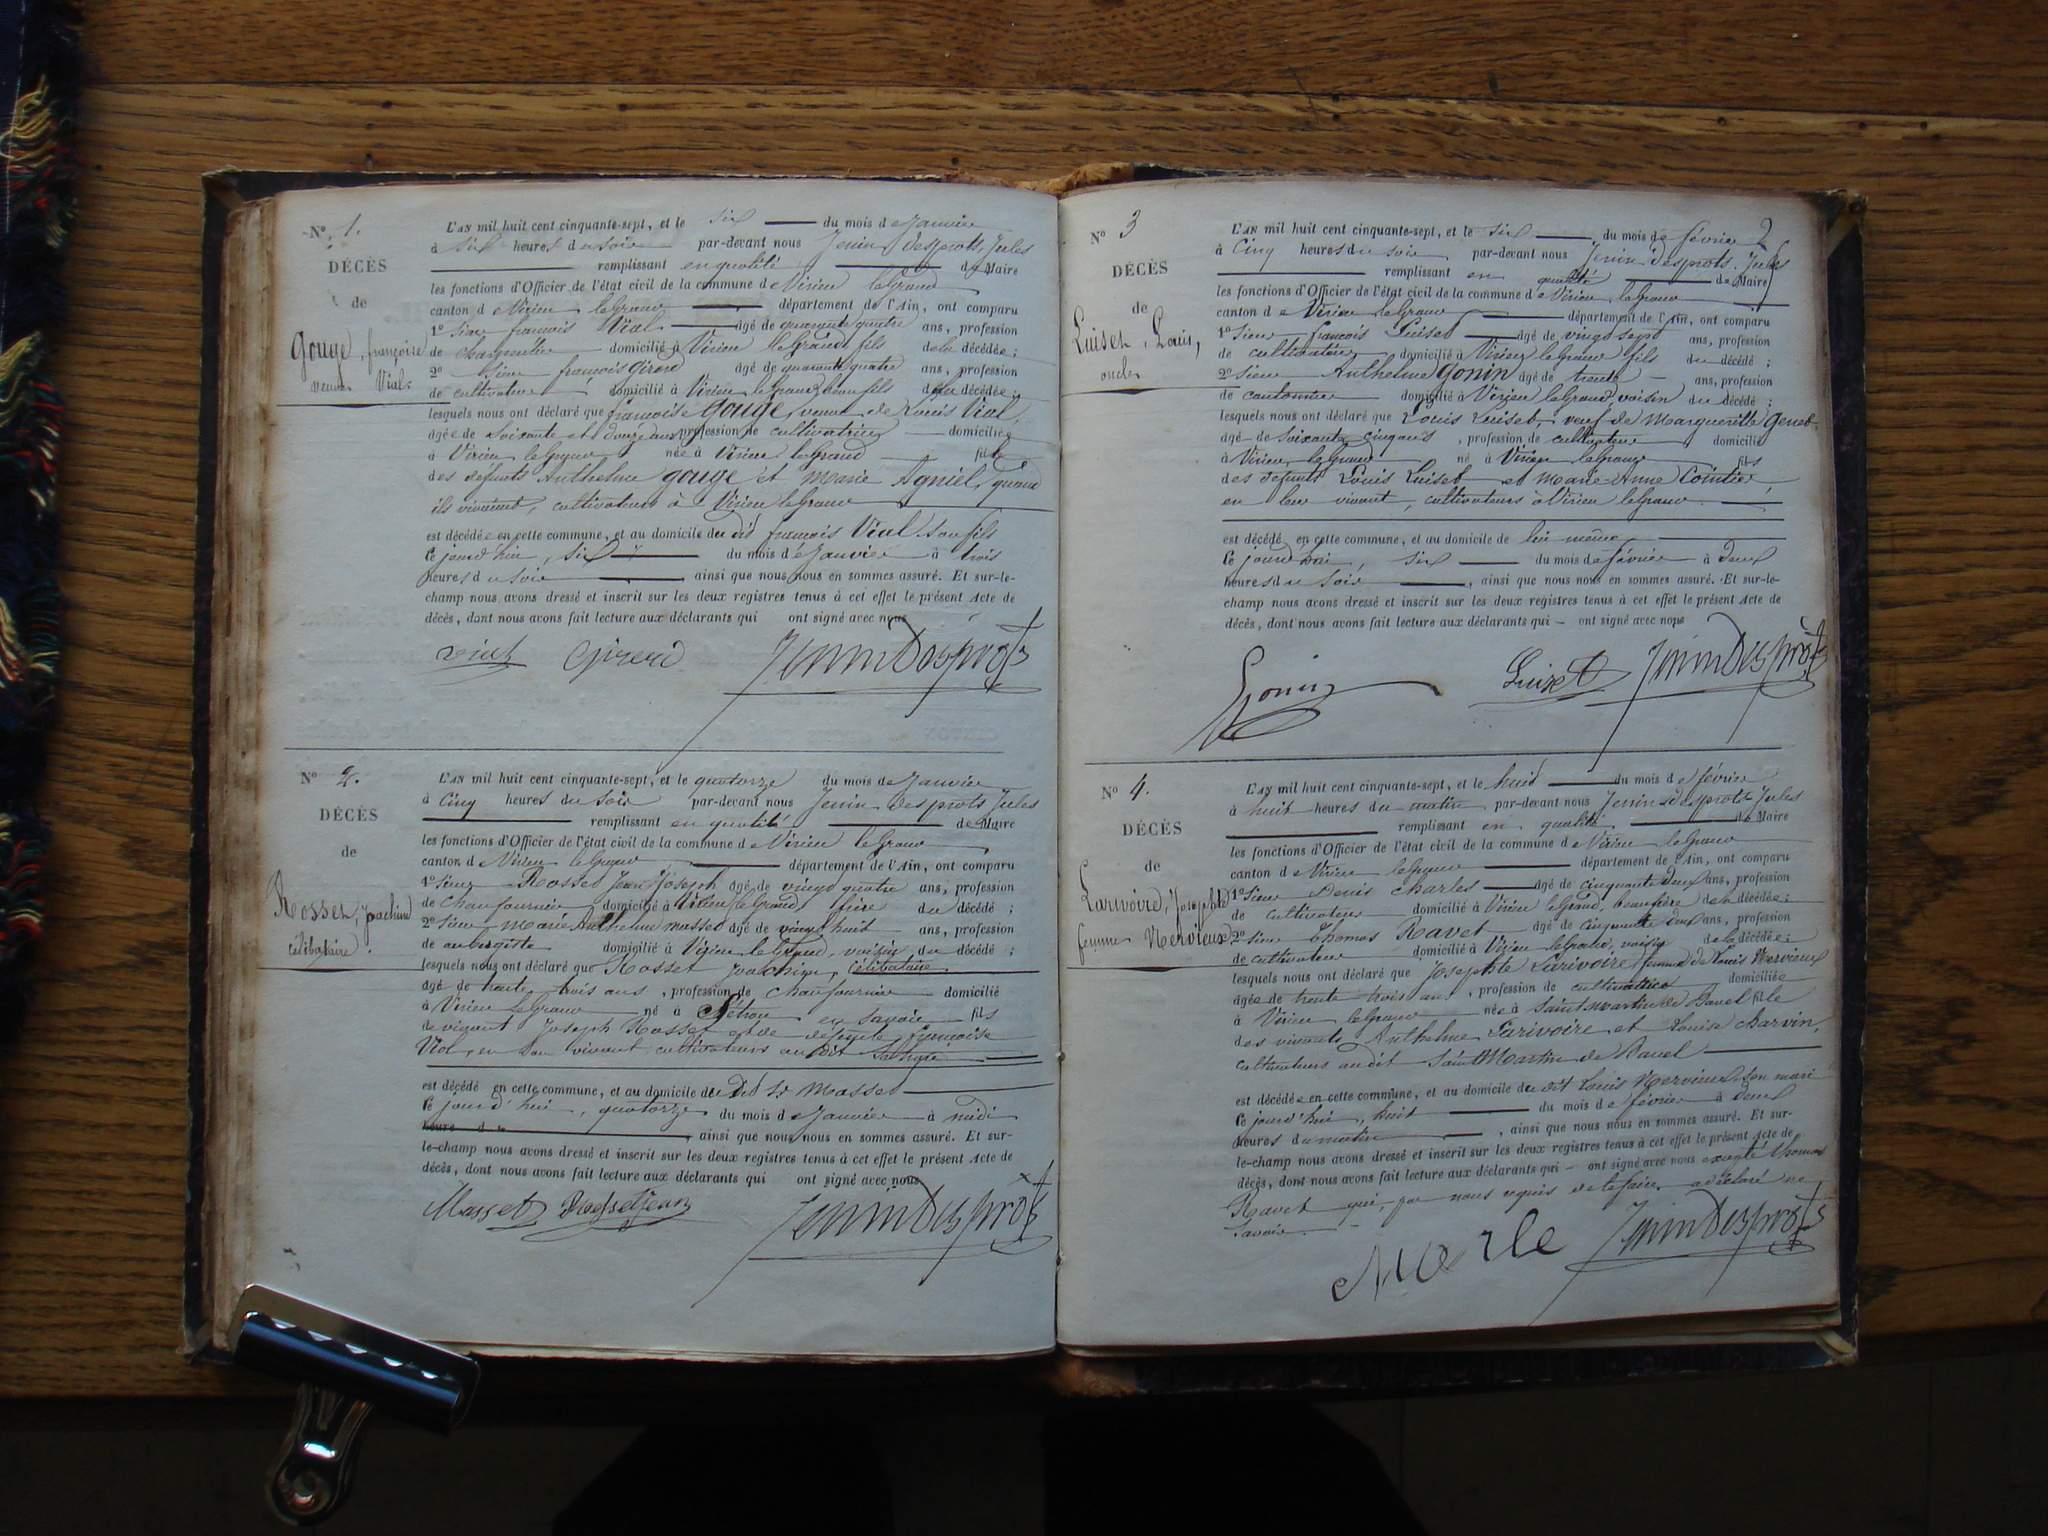 N° 1.
DÉCÈS
de
Gouge, françoise
veuve Vial
L'AN mil huit cent cinquante-sept, et le six du mois de Janvier
à six heures du soir par-devant nous Jenin Desprots, Jules
remplissant en qualité de Maire
les fonctions d'Officier de l'état civil de la commune de Virieu leGrand
canton de Virieu leGrand département de l'Ain, ont comparu
1° sieur françois Vial âgé de quarante quatre ans, profession
de charpentier domicilié à Virieu leGrand fils de la décédée ;
2° sieur françois Girerd âgé de quarante quatre ans, profession
de cultivateur domicilié à Virieu leGrand, beau fils de la décédée ;
lesquels nous ont déclaré que françoise Gouge, veuve de Louis Vial,
âgée de soixante et douze ans, profession de cultivatrice domiciliée
à Virieu leGrand née à Virieu leGrand fille
des défunts Anthelme gouge et Marie Agniel, quand
ils vivaient, cultivateurs à Virieu leGrand
est décédée en cette commune, et au domicile du dit françois Vial son fils
ce jourd'hui, six du mois de Janvier à trois
heures du soir ainsi que nous nous en sommes assuré. Et sur-le-
champ nous avons dressé et inscrit sur les deux registres tenus à cet effet le présent Acte de
décès, dont nous avons fait lecture aux déclarants qui ont signé avec nous
vial Girerd JeninDesprots
N° 2.
DÉCÈS
de
Rosset, Joachim
célibataire.
L'AN mil huit cent cinquante-sept, et le quatorze du mois de Janvier
à cinq heures du soir par-devant nous Jenin Desprots Jules
remplissant en qualité de Maire
les fonctions d'Officier de l'état civil de la commune de Virieu leGrand
canton de Virieu leGrand département de l'Ain, ont comparu
1° sieur Rosset Jean Joseph âgé de vingt quatre ans, profession
de chaufournier domicilié à Virieu leGrand, frère du décédé ;
2° sieur Marie Anthelme Masset âgé de vingt huit ans, profession
de aubergiste domicilié à Virieu leGrand, voisin du décédé ;
lesquels nous ont déclaré que Rosset Joachim, célibataire
âgé de trente trois ans, profession de chaufournier domicilié
à Virieu leGrand né à en savoie fils
de vivant Joseph Rosset et de défunte françoise
Viol, en son vivant cultivateurs au dit
est décédé en cette commune, et au domicile du dit Sr Masset
ce jourd'hui, quatorze du mois de Janvier à midi
heure d ainsi que nous nous en sommes assuré. Et sur-
le-champ nous avons dressé et inscrit sur les deux registres tenus à cet effet le présent Acte de
décès, dont nous avons fait lecture aux déclarants qui ont signé avec nous
Masset RossetJean JeninDesprots
2
N° 3
DÉCÈS
de
Luiset, Louis,
L'AN mil huit cent cinquante-sept, et le six du mois de février
à Cinq heures du soir par-devant nous Jenin Desprots, Jules
remplissant en qualité de Maire
les fonctions d'Officier de l'état civil de la commune de Virieu leGrand
canton de Virieu leGrand département de l'Ain, ont comparu
1° sieur françois Luiset âgé de vingt sept ans, profession
de cultivateur domicilié à Virieu leGrand fils du décédé ;
2° sieur Anthelme Gonin âgé de trente ans, profession
de cantonnier domicilié à Virieu leGrand, voisin du décédé ;
lesquels nous ont déclaré que Louis Luiset, veuf de Marguerite Genet,
âgé de soixante cinq ans, profession de cultivateur domicilié
à Virieu leGrand né à Virieu leGrand fils
des défunts Louis Luiset et Marie-Anne Cointier,
en leur vivant, cultivateurs à Virieu leGrand
est décédé en cette commune, et au domicile de lui même
ce jourd'hui, six du mois de février à deux
heures du soir, ainsi que nous nous en sommes assuré. Et sur-le-
champ nous avons dressé et inscrit sur les deux registres tenus à cet effet le présent Acte de
décès, dont nous avons fait lecture aux déclarants qui ont signé avec nous
Gonin Luiset JeninDesprots
N° 4.
DÉCÈS
de
Larivoire, Josephte
femme Mervieux
L'AN mil huit cent cinquante-sept, et le huit du mois de février
à huit heures du matin par-devant nous Jenin Desprots Jules
remplissant en qualité de Maire
les fonctions d'Officier de l'état civil de la commune de Virieu leGrand
canton de Virieu leGrand département de l'Ain, ont comparu
1° sieur Denis Charles âgé de cinquante deux ans, profession
de cultivateur domicilié à Virieu leGrand, beaufrère de la décédée ;
2° sieur Thomas Ravet âgé de cinquante deux ans, profession
de cultivateur domicilié à Virieu leGrand, voisin de la décédée ;
lesquels nous ont déclaré que Josephte Larivoire, femme de Louis Mervieux
âgée de trente trois ans, profession de cultivatrice domiciliée
à Virieu leGrand née à Saint Martin de Bavel fille
des vivants Anthelme Larivoire et Louise Charvin,
cultivateurs au dit Saint Martin de Bavel
est décédée en cette commune, et au domicile du dit Louis Mervieux, son mari
ce jourd'hui, huit du mois de février à deux
heures du matin, ainsi que nous nous en sommes assuré. Et sur-
le-champ nous avons dressé et inscrit sur les deux registres tenus à cet effet le présent Acte de
décès, dont nous avons fait lecture aux déclarants qui ont signé avec nous excepté Thomas
Ravet qui, par nous requis de le faire, a déclaré ne
savoir.
Merle JeninDesprots